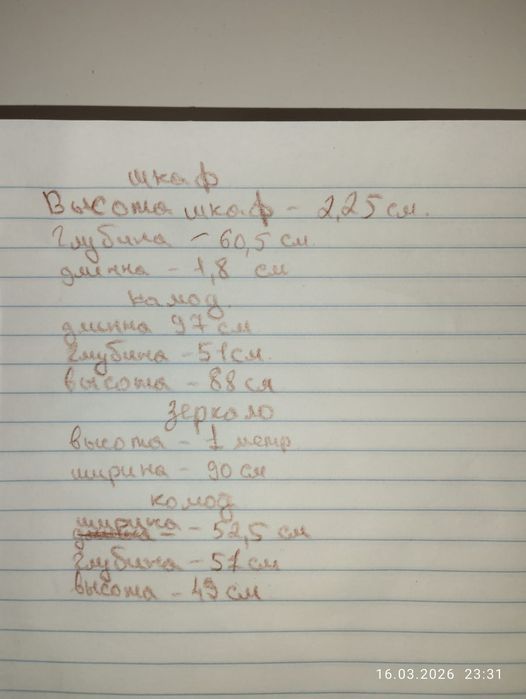 шкаф
Высота шкаф - 2,25 см.
Глубина - 60,5 см
длинна - 1,8 см
камод.
длинна 97 см
Глубина - 51 см.
высота - 88 см
Зеркало
высота - 1 метр
ширина - 90 см
комод
ширина - 52,5 см
Глубина - 51 см
высота - 49 см
16.03.2026 23:31